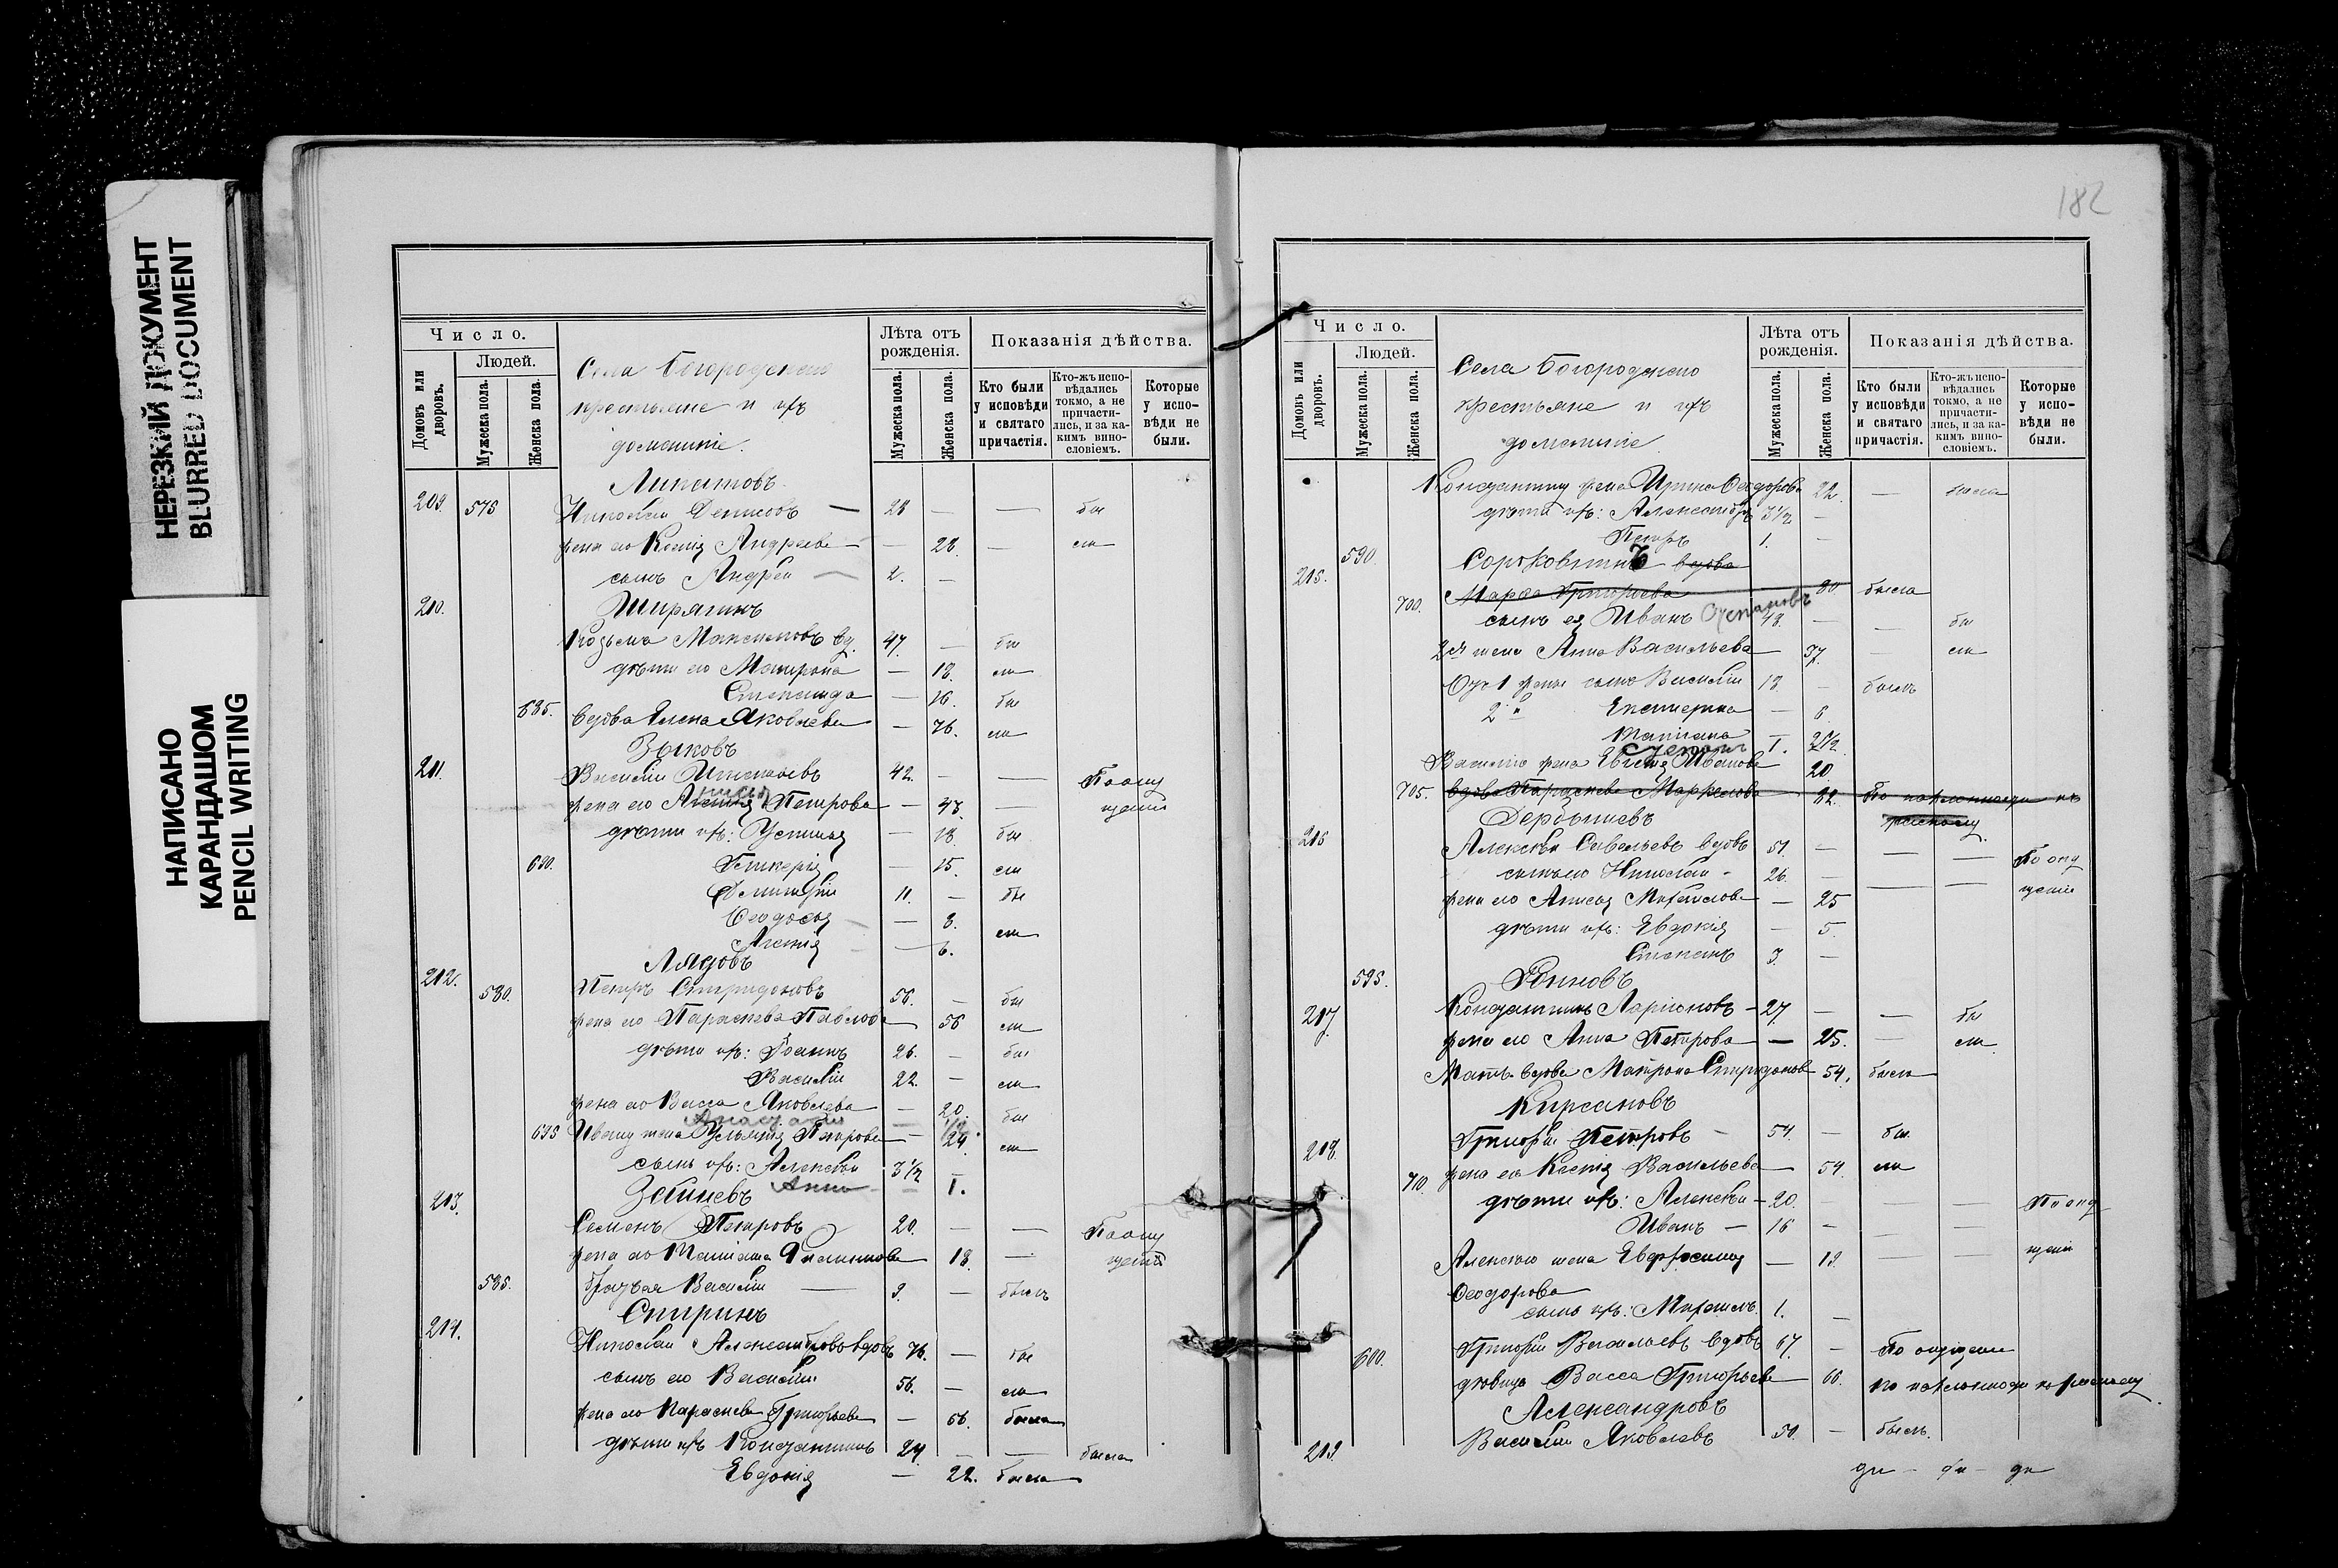 НЕРЕЗКИЙ ДОКУМЕНТ
BLURRED DOCUMENT
НАПИСАНО
КАРАНДАШОМ
PENCIL WRITING
Число.
Людей.
Домовъ или дворовъ.
Мужеска пола.
Женска пола.
Села Богородскаго
крестьяне и ихъ
домашніе.
Лѣта отъ рожденія.
Мужеска пола.
Женска пола.
Показанія дѣйства.
Кто были у исповѣди и святаго причастія.
Кто-жъ исповѣдались токмо, а не причастились, и за какимъ винословіемъ.
Которые у исповѣди не были.
Липатовъ
209. 578 Николай Денисовъ — 28 — — бы
жена его Ксенія Андреева — 28. — ла
сынъ Андрей — 2. —
210. Ширяевъ
Козьма Максимовъ вд. 47. — бы
дѣти его Матрона — 18. ла
Степанида — 16. бы
685. Вдова Елена Яковлева — 76. ла
Зыковъ
211. Василій 42. — — По опу
жена его Петрова — 43. — щенію
дѣти ихъ: Устинья — 18. бы
690. Гликерія — 15. ли
Димитрій 11. — бы
Ѳеодосія — 8. ли
— 6.
Лядовъ
212. 580. Петръ Спиридоновъ 56. — бы
жена его Параскева Павлова 56 ли
дѣти ихъ: Іоаннъ 26. — бы
Василій 22. — ли
жена его Васса Яковлева — 20. бы
695 Ивану жена Петрова — 24. ли
сынъ ихъ: Алексѣй 3 1/2
Анна — I.
213. Зайцевъ
Семенъ Петровъ 20. — — По опу
жена его Татіана Филиппова 18. — щенію
585. Василій — 9. — былъ
Спиринъ
214. Николай Александровъ вдовъ 76. — бы
сынъ его Василій 56. — ли
жена его Параскева Григорьева — 56. была
дѣти ихъ Константинъ 24 — —
Евдокія — 22. была
182
Число.
Людей.
Домовъ или дворовъ.
Мужеска пола.
Женска пола.
Села Богородскаго
крестьяне и ихъ
домашніе
Лѣта отъ рожденія.
Мужеска пола.
Женска пола.
Показанія дѣйства.
Кто были у исповѣди и святаго причастія.
Кто-жъ исповѣдались токмо, а не причастились, и за какимъ винословіемъ.
Которые у исповѣди не были.
Константину жена Ирина Ѳеодорова 22. — была
дѣти ихъ: Александръ 3 1/2 —
590. Петръ 1. —
215. Сороковинъ вдова
700. Марѳа Григорьева 80 была
сынъ ея Иванъ Степановъ 48. — — бы
2-я жена Анна Васильева 37. — ли
Отъ 1 жены сынъ Василій 18. — былъ
2 " Екатерина — 6.
Татіана — 2 1/2
Степанъ I.
Василію жена Иванова 20.
705. вдова Параскева 82. По наклонности къ
расколу
216 Дербышевъ
Алексѣй Савельевъ вдовъ 51. — — — По опу
сынъ его Николай - 26. — — — щенію
жена его Анисія Михайлова — 25
дѣти ихъ: Евдокія — 5.
595. Степанъ 3. —
217. Константинъ Ларіоновъ - 27. — — бы
жена его Анна Петрова — 25. — ли
Мать вдова Матрона Спиридонова 54. была
Кирсановъ
218 Григорій Петровъ - 54. — бы
710. жена его Ксенія Васильева — 54 ли
дѣти ихъ: Алексѣй - 20. — — По опу
Иванъ — 16 — — —
Алексѣю жена Евфросинія — 19. — — щенію
Ѳеодорова
сынъ ихъ: Михаилъ. 1. —
600. Григорій Васильевъ вдовъ 67. — По опущенію
дѣвица Васса Григорьева 66. по наклонности къ расколу
Александровъ
219. Василій Яковлевъ 50. — былъ.